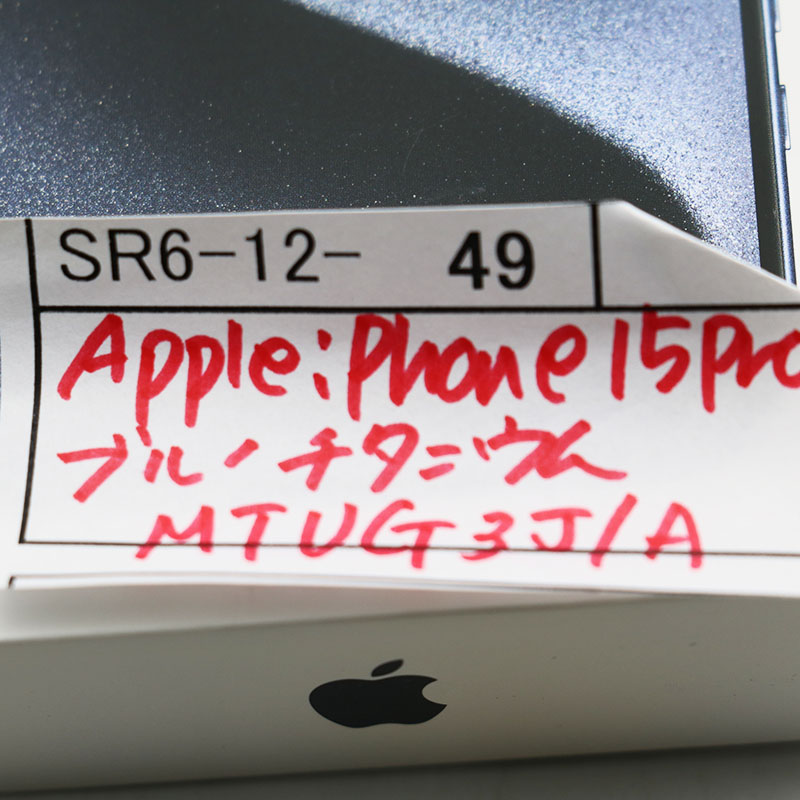 SR6-12- 49
Apple:Phone 15Pro
ブルーチタニウム
MTUG3J/A